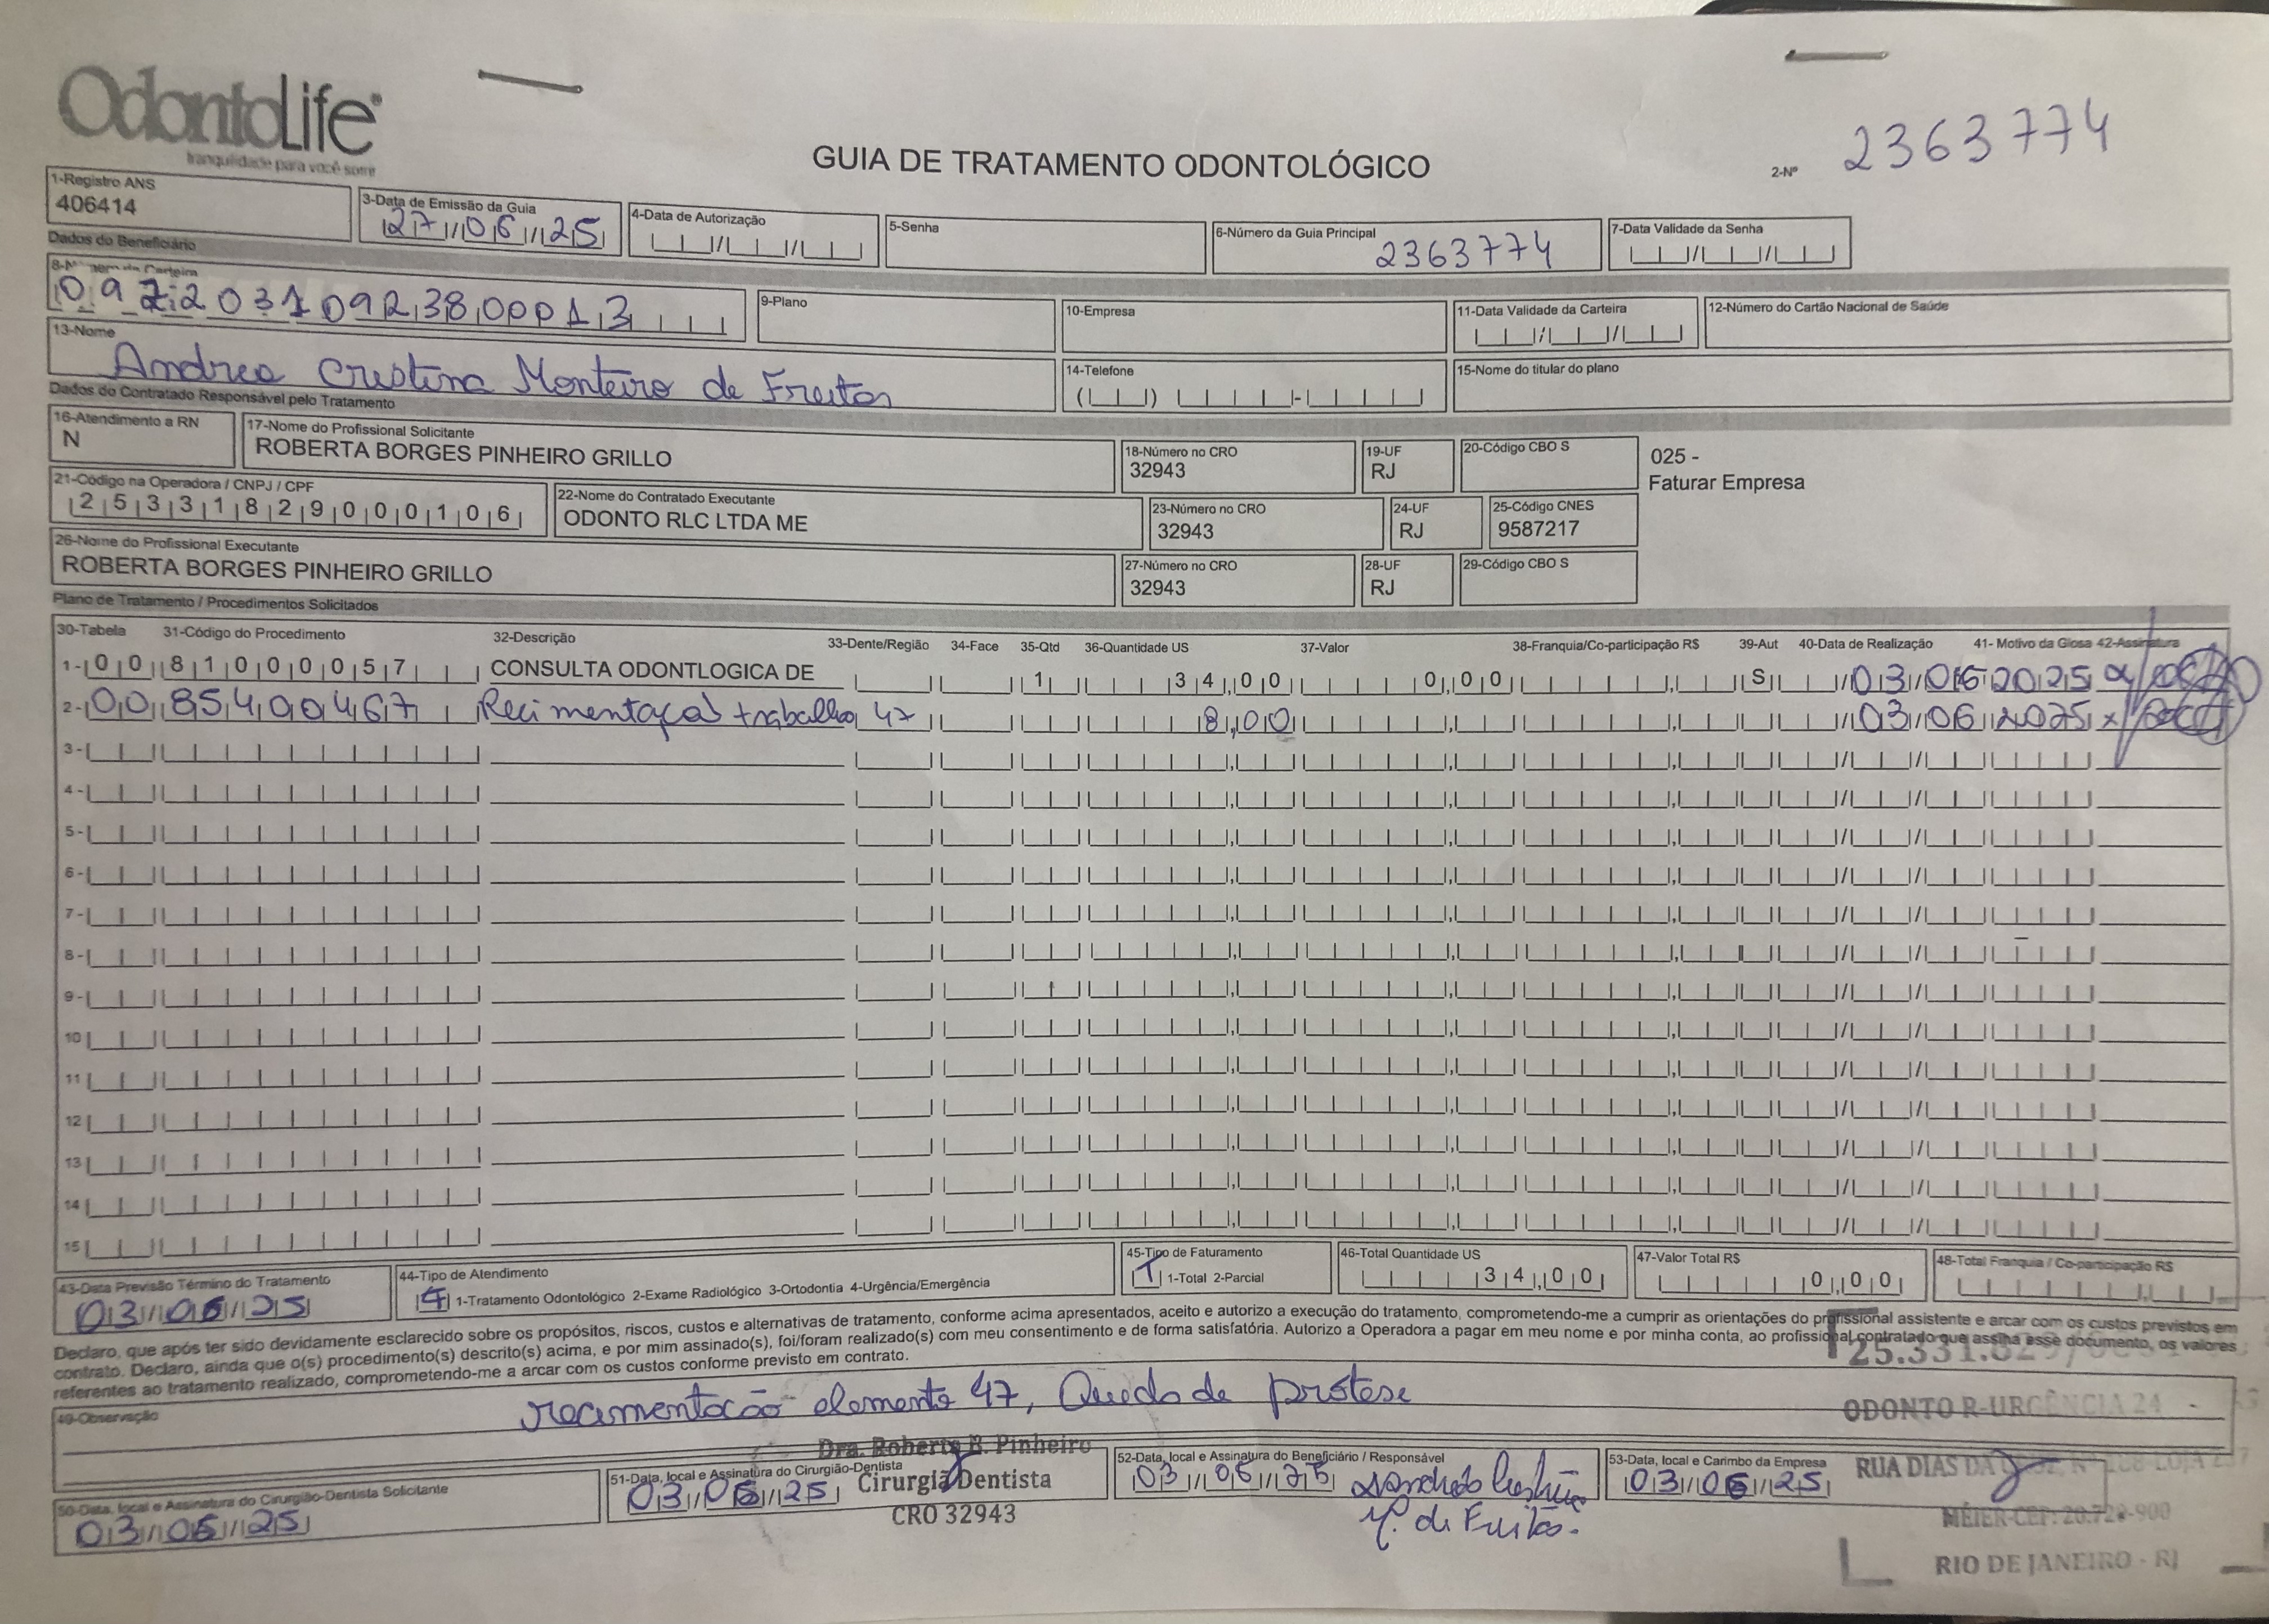 OdontoLife®
tranquilidade para você sorrir
GUIA DE TRATAMENTO ODONTOLÓGICO
2-Nº 2363774
1-Registro ANS
406414
3-Data de Emissão da Guia
27/06/25
4-Data de Autorização
5-Senha
6-Número da Guia Principal
2363774
7-Data Validade da Senha
Dados do Beneficiário
8-Número da Carteira
09720310923800013
9-Plano
10-Empresa
11-Data Validade da Carteira
12-Número do Cartão Nacional de Saúde
13-Nome
Andrea Cristina Monteiro de Freitas
14-Telefone
15-Nome do titular do plano
Dados do Contratado Responsável pelo Tratamento
16-Atendimento a RN
N
17-Nome do Profissional Solicitante
ROBERTA BORGES PINHEIRO GRILLO
18-Número no CRO
32943
19-UF
RJ
20-Código CBO S
025 -
Faturar Empresa
21-Código na Operadora / CNPJ / CPF
25331829000106
22-Nome do Contratado Executante
ODONTO RLC LTDA ME
23-Número no CRO
32943
24-UF
RJ
25-Código CNES
9587217
26-Nome do Profissional Executante
ROBERTA BORGES PINHEIRO GRILLO
27-Número no CRO
32943
28-UF
RJ
29-Código CBO S
Plano de Tratamento / Procedimentos Solicitados
30-Tabela 31-Código do Procedimento 32-Descrição 33-Dente/Região 34-Face 35-Qtd 36-Quantidade US 37-Valor 38-Franquia/Co-participação R$ 39-Aut 40-Data de Realização 41- Motivo da Glosa 42-Assinatura
1- 00 81000057 CONSULTA ODONTLOGICA DE 1 34,00 0,00 S 03/06/2025
2- 00 85400467 Recimentação trabalho 47 8,00 03/06/2025
3-
4-
5-
6-
7-
8-
9-
10
11
12
13
14
15
43-Data Previsão Término do Tratamento
03/06/25
44-Tipo de Atendimento
4 1-Tratamento Odontológico 2-Exame Radiológico 3-Ortodontia 4-Urgência/Emergência
45-Tipo de Faturamento
1 1-Total 2-Parcial
46-Total Quantidade US
34,00
47-Valor Total R$
0,00
48-Total Franquia / Co-participação R$
Declaro, que após ter sido devidamente esclarecido sobre os propósitos, riscos, custos e alternativas de tratamento, conforme acima apresentados, aceito e autorizo a execução do tratamento, comprometendo-me a cumprir as orientações do profissional assistente e arcar com os custos previstos em
contrato. Declaro, ainda que o(s) procedimento(s) descrito(s) acima, e por mim assinado(s), foi/foram realizado(s) com meu consentimento e de forma satisfatória. Autorizo a Operadora a pagar em meu nome e por minha conta, ao profissional contratado que assina esse documento, os valores
referentes ao tratamento realizado, comprometendo-me a arcar com os custos conforme previsto em contrato.
49-Observação
recimentação elemento 47, Queda de prótese
50-Data, local e Assinatura do Cirurgião-Dentista Solicitante
03/06/25
51-Data, local e Assinatura do Cirurgião-Dentista
03/06/25
Dra. Roberta B. Pinheiro
Cirurgiã Dentista
CRO 32943
52-Data, local e Assinatura do Beneficiário / Responsável
03/06/25
M. de Freitas.
53-Data, local e Carimbo da Empresa
03/06/25
25.331.829
ODONTO R-URGÊNCIA 24
RUA DIAS DA
MÉIER-CEP: 20.720-900
RIO DE JANEIRO - RJ